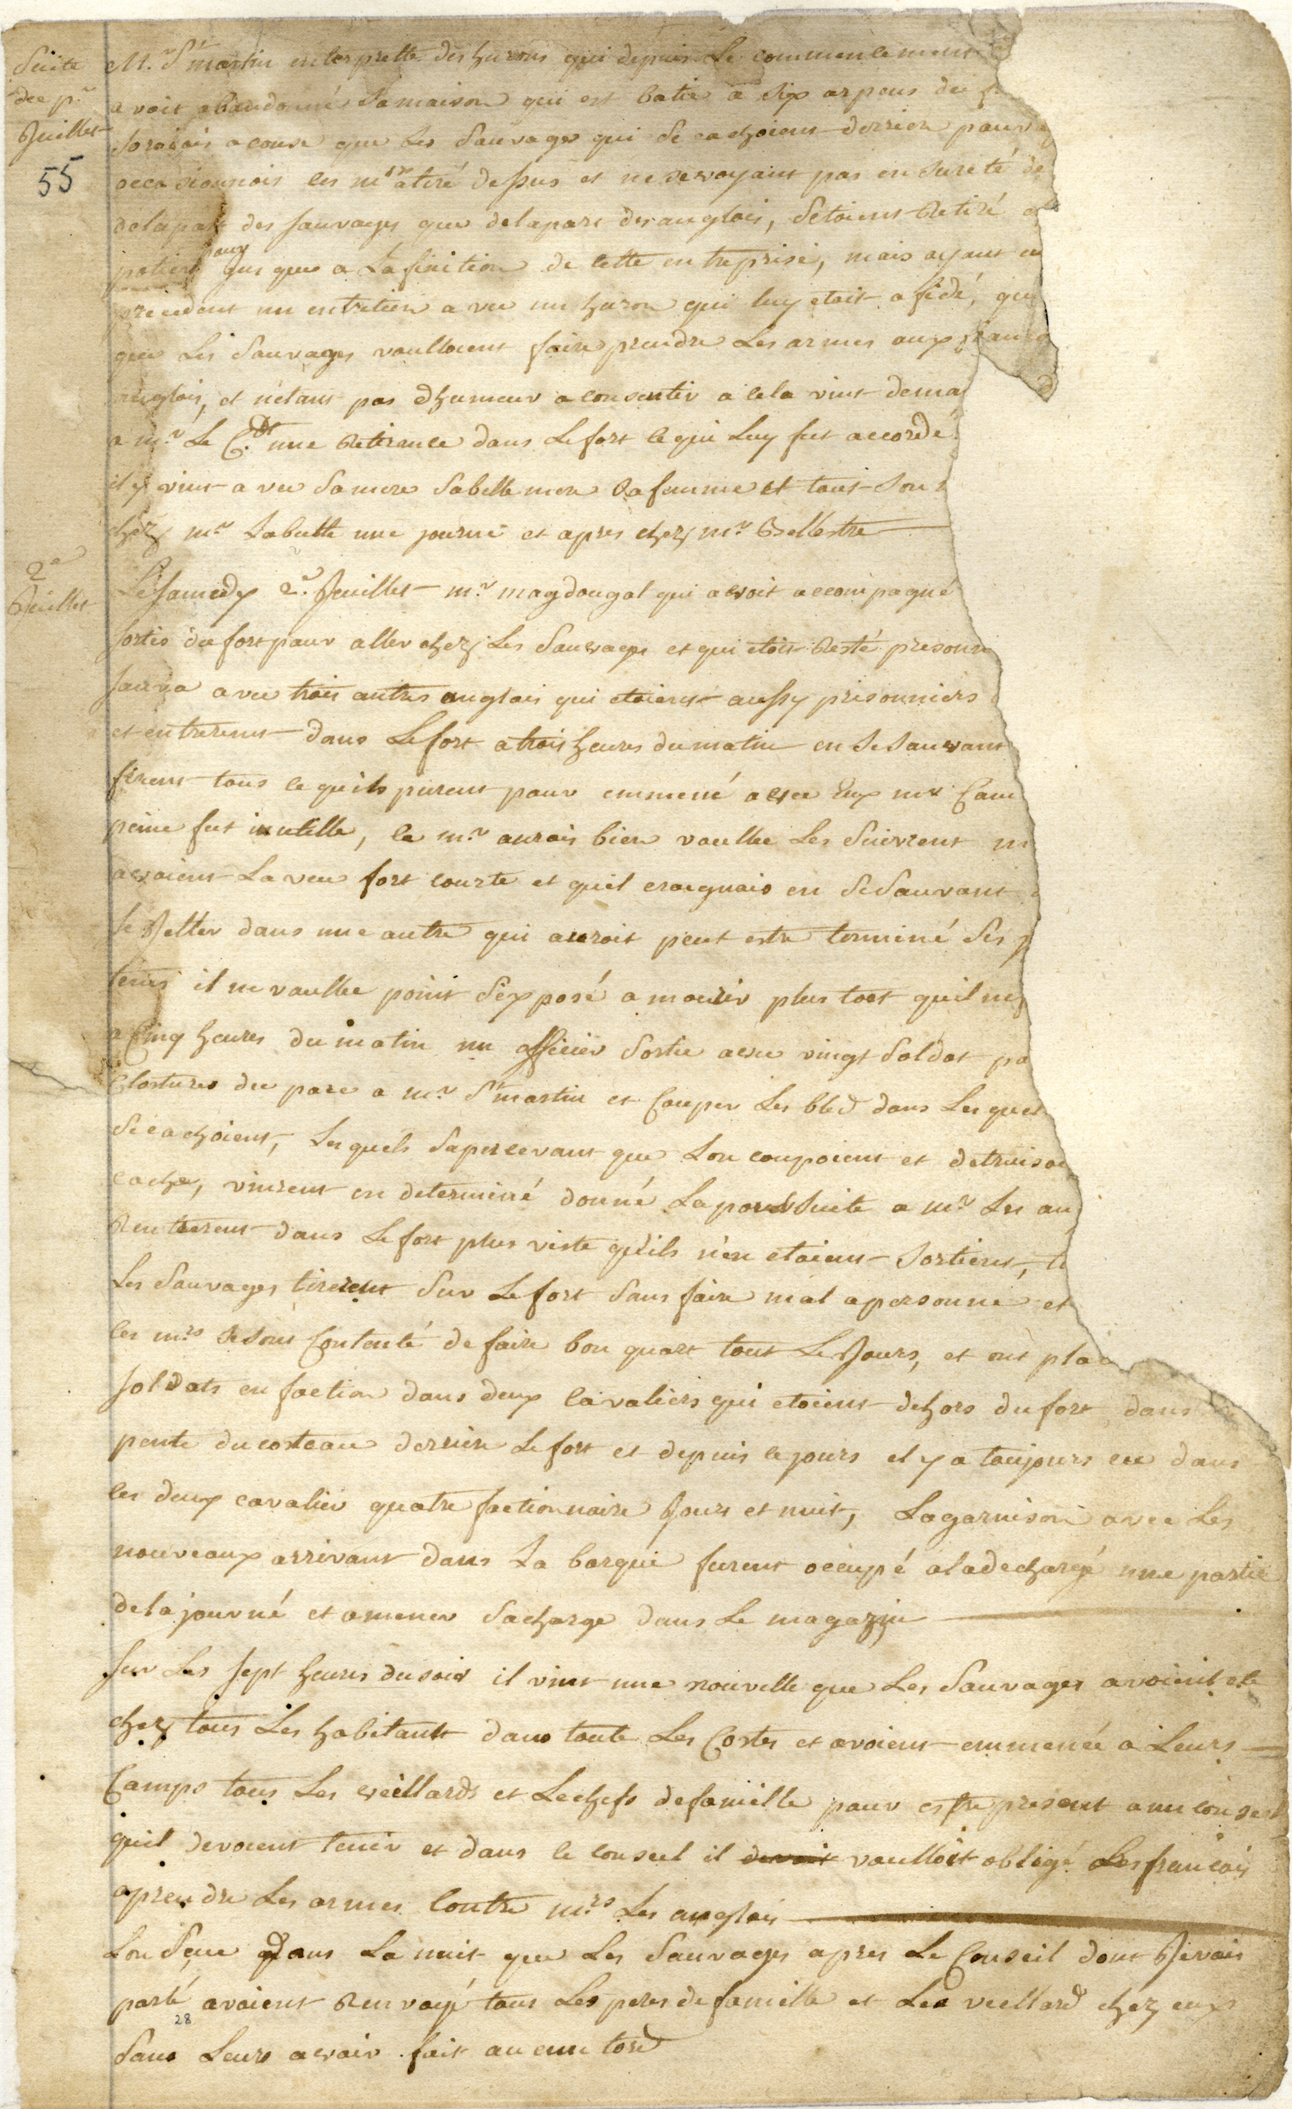 Suitte
du p.r
Juillet
55
M.r St martin interprette des hurons qui depuis Le commencement
avoit abandonnés Sa maison qui est batie a Six arpens du f
a couse que Les Sauvages qui Se cachoient derriere pour
occasionnois les m.rs a tiré dessus et ne se voyant pas en Sureté de
de la part des Sauvages que de la part des anglois, Setoient Retiré
pour jus que a La finition de cette entreprise, mais ayant
precedent un entretien avec un huron qui luy etoit afidé, qu
que Les Sauvages voulloient faire prendre Les armes aux franç
anglois, et n'etant pas d'humeur a consentir a cela vint dema
a m.r Le C.dt une Retirance dans Le fort ce qui Luy fut accordé
il y vint avec Sa mere Sa belle mere Sa femme et tout Son
chez m.r Labutte une journé et apres chez m.r Bellestre
2.e
Juillet
Le Samedy 2.e Jeuillet m.r magdougal qui avoit accompagné
sortis du fort pour aller chez Les Sauvages et qui etoit Resté prisonn
sauva avec trois autres anglois qui etoient aussy prisonniers
et entrerent dans Le fort a trois heures du matin en Se Sauvant
firent tous ce quils purent pour emmené avec Eux m.r Cam
peine fut inutille, ce m.r aurois bien voullu Les Suivrent m
avoient La veu fort courte et quil craignais en Se Sauvant
se Jetter dans une autre qui auroit peut estre terminé Ses j
tems il ne voullu point S'exposé a mourir plus tost quil ne
a Cinq heures du matin un officier Sortie avec vingt Soldat po
Clostures du parc a m.r St martin et Couper Les bled dans Lesquel
Se cachoient, Lesquels Sapercevant que Lon coupoient et detruiso
cache, vinrent en determiné donné La poursuite a m.r Les an
Rentrerent dans Le fort plus viste qu'ils n'en etoient Sortient, t
Les Sauvages tirerent Sur Le fort Sans faire mal a personne et
les m.rs Se Sont Contenté de faire bon quart tout Le Jours, et ont pla
Soldats en faction dans deux Cavaliers qui etoient dehors du fort dans
pente du costeau derriere Le fort et depuis ce jours il y a toujours eu dans
ces deux cavalier quatre factionnaire Jours et nuit, La garnison avec Les
nouveaux arrivant dans La barque furent occupé a la dechargé une partie
de la journé et a mener Sa charge dans Le magazin
Sur Les Sept heures du soir il vint une nouvelle que Les Sauvages avoient eté
chez tous Les habitants dans toute Les Costes et avoient emmené a Leurs
Camps tous Les vieillards et Le chefs de famille pour estre present a un conseil
quil devoient tenir et dans ce conseil il devoit voulloit obligé Les francois
a prendre Les armes Contre m.rs Les anglois
Lon Seue dans La nuit que Les Sauvages apres Le Conseil dont Je vais
parlé avoient Renvoyé tous Les peres de famille et Les viellard chez eux
28
Sans Leurs avoir fait aucun tord